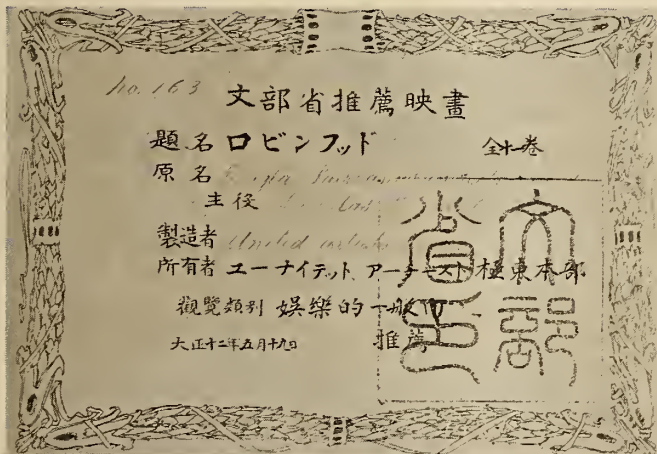 No. 163
文部省推薦映畫
題名 ロビンフッド 全十一卷
原名
主役
製造者 United Artists
所有者 ユーナイテット、アーチースト極東本部
觀覽類別 娯樂的 一般向
大正十二年五月十九日 推薦
文部省印